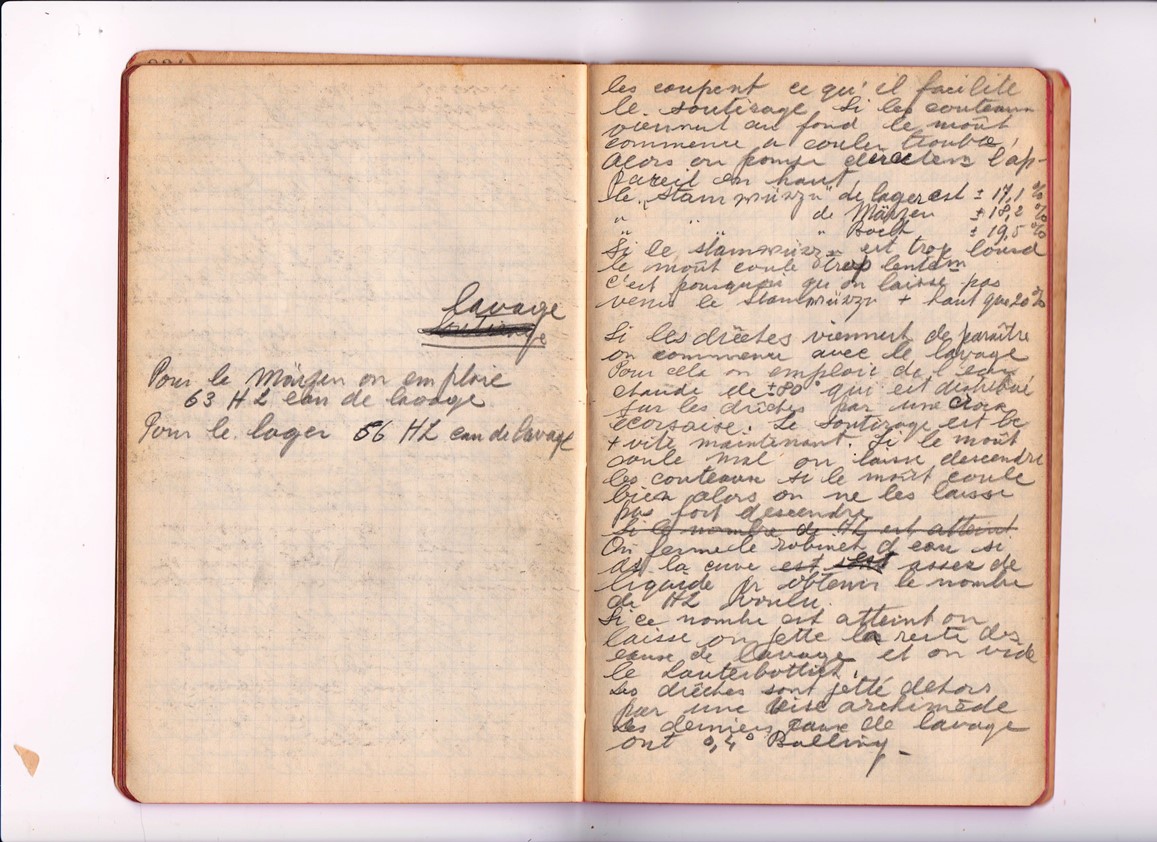 lavage
Pour le Märzen on emploie
63 HL eau de lavage
Pour le lager 56 HL eau de lavage
les coupent ce qu'il facilite
le soutirage. Si les couteaux
viennent au fond le moût
commence a couler trouble,
Alors on pompe directem l'ap-
pareil en haut
le "Stammwürze" de lager est ± 17,1 %
" " de Märzen ± 18,2 %
" " " Bock ± 19,5 %
Si le stammwürze est trop lourd
le moût coule trop lentem
c'est pourquoi qu'on laisse pas
venir le Stammwürze + haut que 20 %
Si les drêches viennent de paraître
on commence avec le lavage
Pour cela on emploie de l'eau
chaude de ± 80° qui est distribué
sur les drêches par une croix
écossaise. Le soutirage est bc
+ vite maintenant. Si le moût
coule mal on laisse descendre
les couteaux si le moût coule
bien alors on ne les laisse
pas fort descendre
Si le nombre de HL est atteint
On ferme le robinet d'eau si
ds la cuve est assez de
liquide pr obtenir le nombre
de HL voulu.
Si ce nombre est atteint on
laisse on jette la reste des
eaux de lavage et on vide
le Lauterbottich.
Les drêches sont jetté dehors
par une vise archimède
Les derniers eaux de lavage
ont 0,4° Balling -